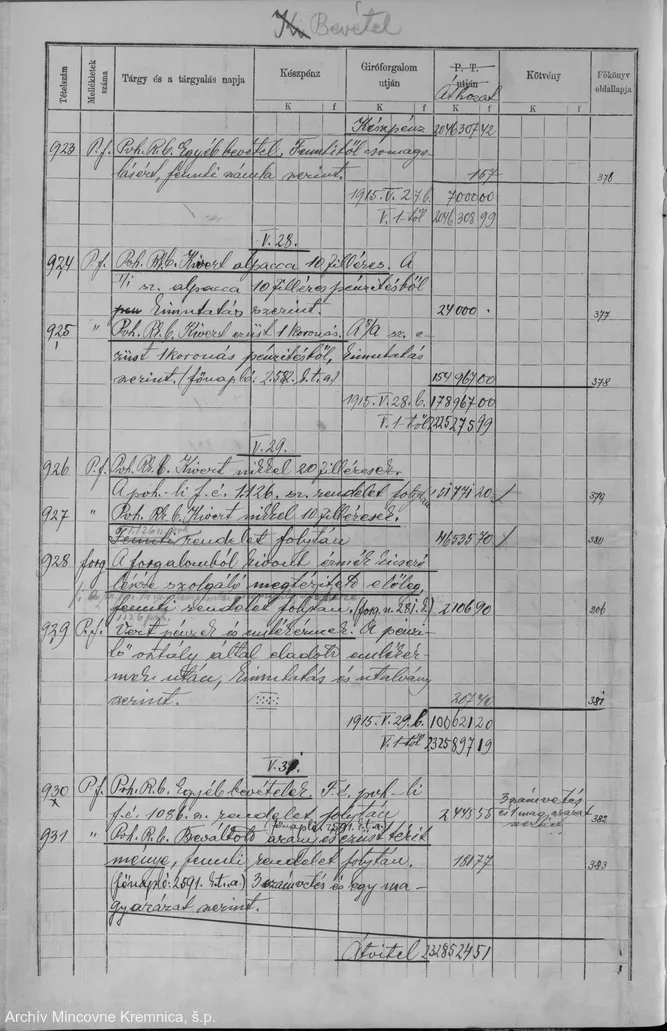 Bevétel
Tételszám
Mellékletek száma
Tárgy és a tárgyalás napja
Készpénz
Giróforgalom útján
P. T. útján
Áthozat
Kötvény
Főkönyv oldallapja
K f K f K f K f
Készpénz 204630742
923 P.f. Poh. R.b. Egyéb bevétel, Fenntitől csomago-
lásért, fennti számla szerint. 157 376
1915. V. 27. b. 700000
V. 1-től 204630899
V. 28.
924 P.f. Poh. Rk. b. Kivert alpacca 10 filléres. A
1/1 sz. alpacca 10 filléres pénzítésből
Kimutatás szerint. 24000 . 377
925 " Poh. Rk. b. Kivert ezüst 1 koronás. A 7/a sz. e-
züst 1 koronás pénzítésből, Kimutatás
szerint. (főnapló: 2582. k.t.a) 15496700 378
1915. V. 28. b. 17896700
V. 1-től 222527599
V. 29.
926 P.f. Poh. Rk. b. Kivert nikkel 20 filléresek.
A poh-li f.é. 1126. sz. rendelet folytán 5177120 379
927 " Poh. Rk. b. Kivert nikkel 10 filléresek.
Fennti rendelet folytán 4653570 380
928 forg A forgalomból bevont érmék kicseré-
lésére szolgáló megtérítető előleg,
fennti rendelet folytán. (forg. n. 281. k.) 210690 206
929 P.f. Vert pénzek és emlékérmek. A pénz-
tő osztály által eladott emlékér-
mek után, Kimutatás és utalvány
szerint. 20740 381
1915. V. 29. b. 10062120
V. 1-től 232589719
V. 31.
930 P.f. Poh. R.b. Egyéb bevételek. F.é. poh-li
f.é. 1086. sz. rendelet folytán 244555 3 számvetés
és 1 magyarázat
szerint 382
(főnapló 2591. k.t.a)
931 " Poh. R.b. Beváltott arany és ezüst térít
ménye, fennti rendelet folytán. 18177 383
(főnapló: 2591. k.t.a) 3 számvetés és egy ma-
gyarázat szerint.
Átvitel 232852451
Archív Mincovne Kremnica, š.p.